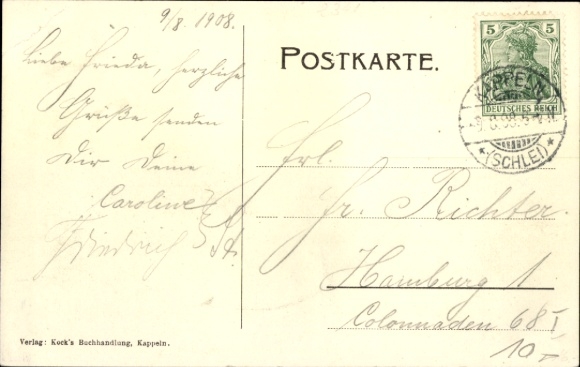 9/8. 1908.
Liebe Frieda, herzliche
Grüße senden
Dir Deine
Caroline
Friedrich
POSTKARTE.
5 5
DEUTSCHES REICH
KAPPELN
(SCHLEI)
Frl.
Fr. Richter.
Hamburg 1
Colonnaden 68 I
10,-
Verlag: Kock's Buchhandlung, Kappeln.